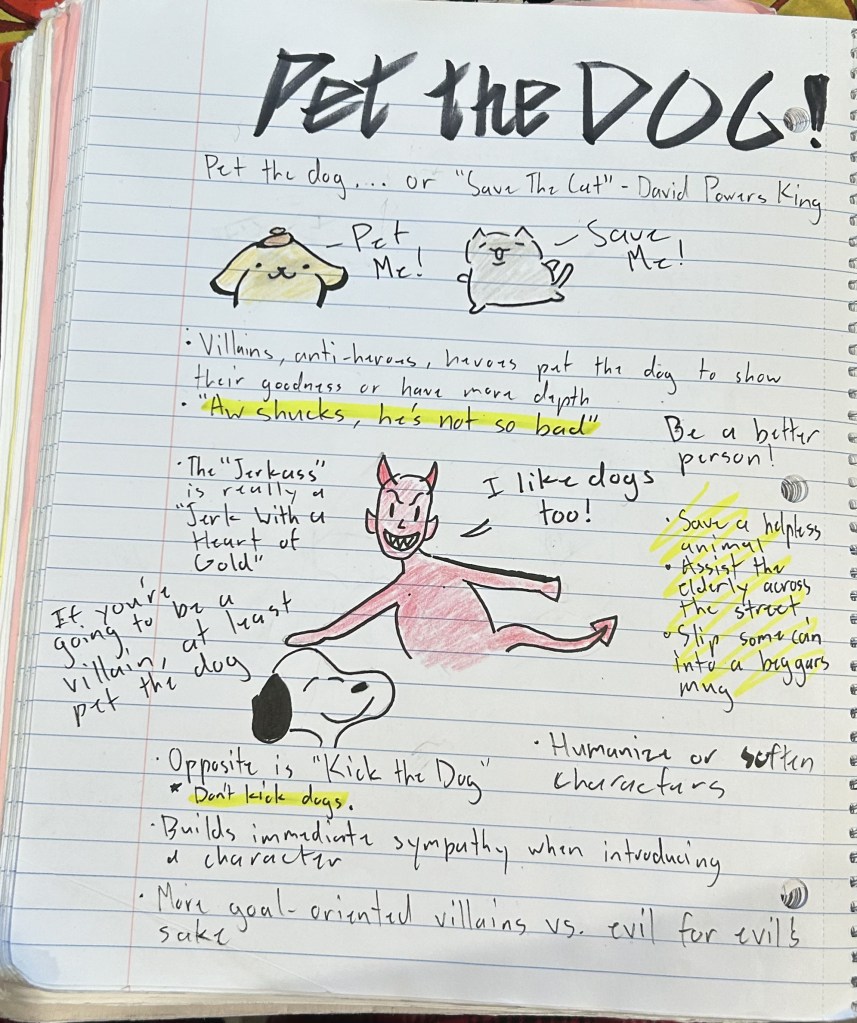 Pet the DOG!
Pet the dog.... or "Save The Cat" - David Powers King
- Pet
Me!
- Save
Me!
• Villains, anti-heroes, heroes pet the dog to show
their goodness or have more depth
• "Aw shucks, he's not so bad"
Be a better
person!
• The "Jerkass"
is really a
"Jerk with a
Heart of
Gold"
I like dogs
too!
• Save a helpless
animal
• Assist the
elderly across
the street
• Slip some coin
into a beggars
mug
If you're
going to be a
villain, at least
pet the dog
• Opposite is "Kick the Dog"
* Don't kick dogs.
• Humanize or soften
characters
• Builds immediate sympathy when introducing
a character
• More goal-oriented villains vs. evil for evil's
sake